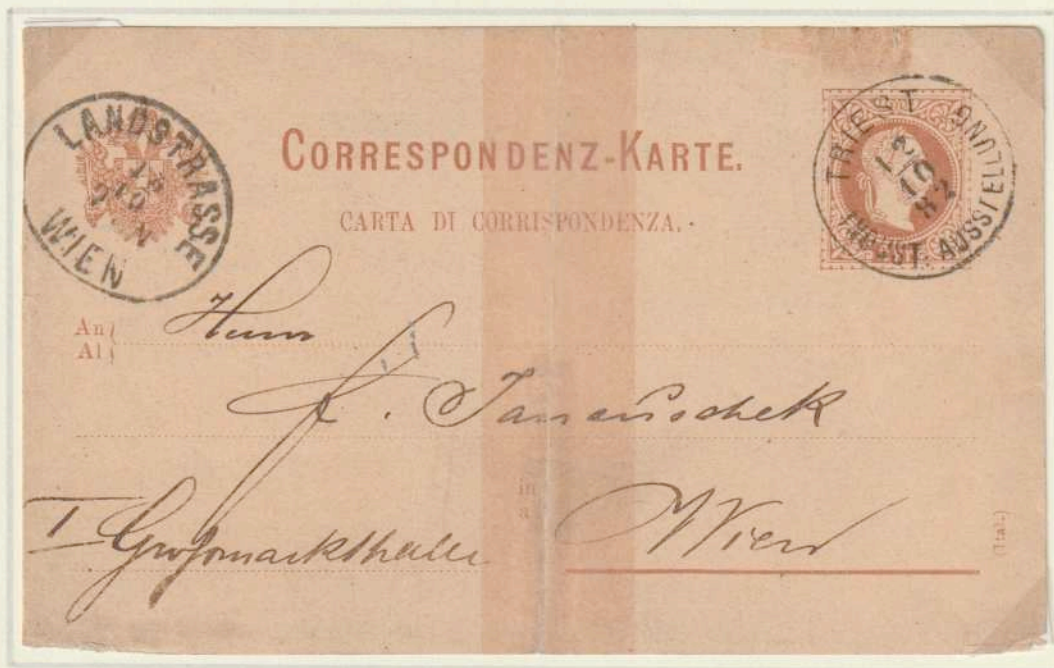 LANDSTRASSE
WIEN
CORRESPONDENZ-KARTE.
CARTA DI CORRISPONDENZA.
TRIEST
12/10
82
INDUST. AUSSTELLUNG
An
Al
Herrn
J. Janauschek
in
a
Wien
I Großmarkthalle
(Ital.)